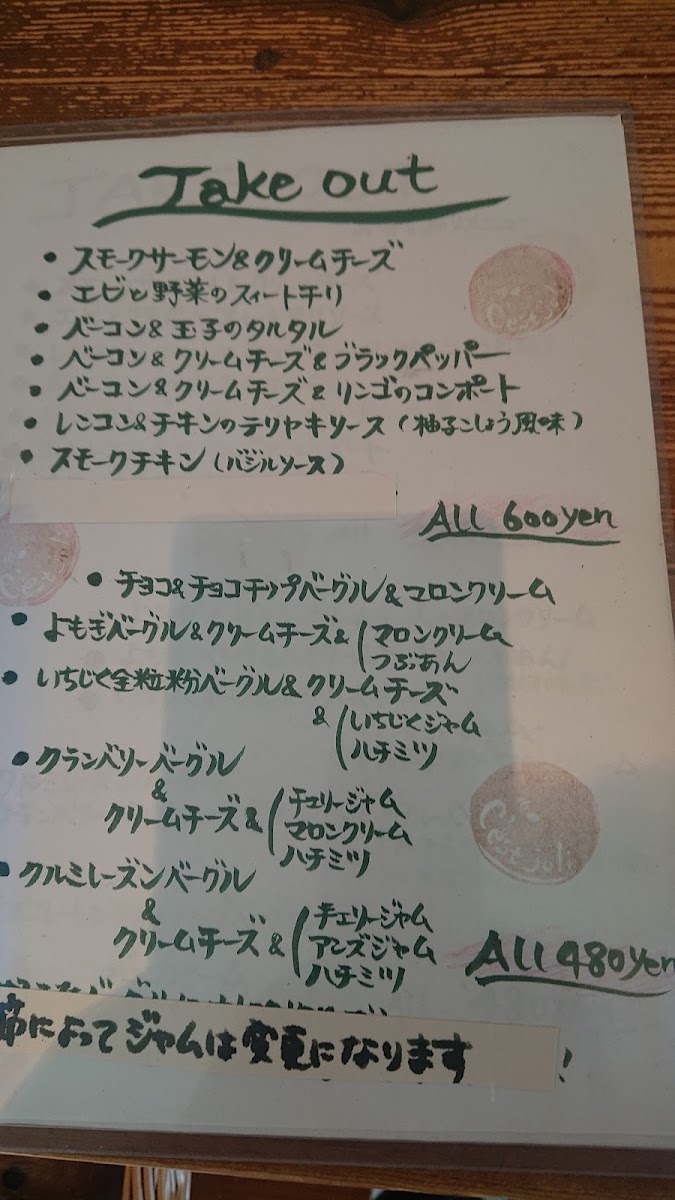 Take out
• スモークサーモン&クリームチーズ
• エビと野菜のスィートチリ
• ベーコン&玉子のタルタル
• ベーコン&クリームチーズ&ブラックペッパー
• ベーコン&クリームチーズ&リンゴのコンポート
• レンコン&チキンのテリヤキソース(柚子こしょう風味)
• スモークチキン(バジルソース)
All 600yen
• チョコ&チョコチップベーグル&マロンクリーム
• よもぎベーグル&クリームチーズ&(マロンクリーム
つぶあん
• いちじく全粒粉ベーグル&クリームチーズ
&(いちじくジャム
ハチミツ
• クランベリーベーグル
&
クリームチーズ&(チェリージャム
マロンクリーム
ハチミツ
• クルミレーズンベーグル
&
クリームチーズ&(チェリージャム
アンズジャム
ハチミツ
C'est joli
All 480yen
節によってジャムは変更になります
!